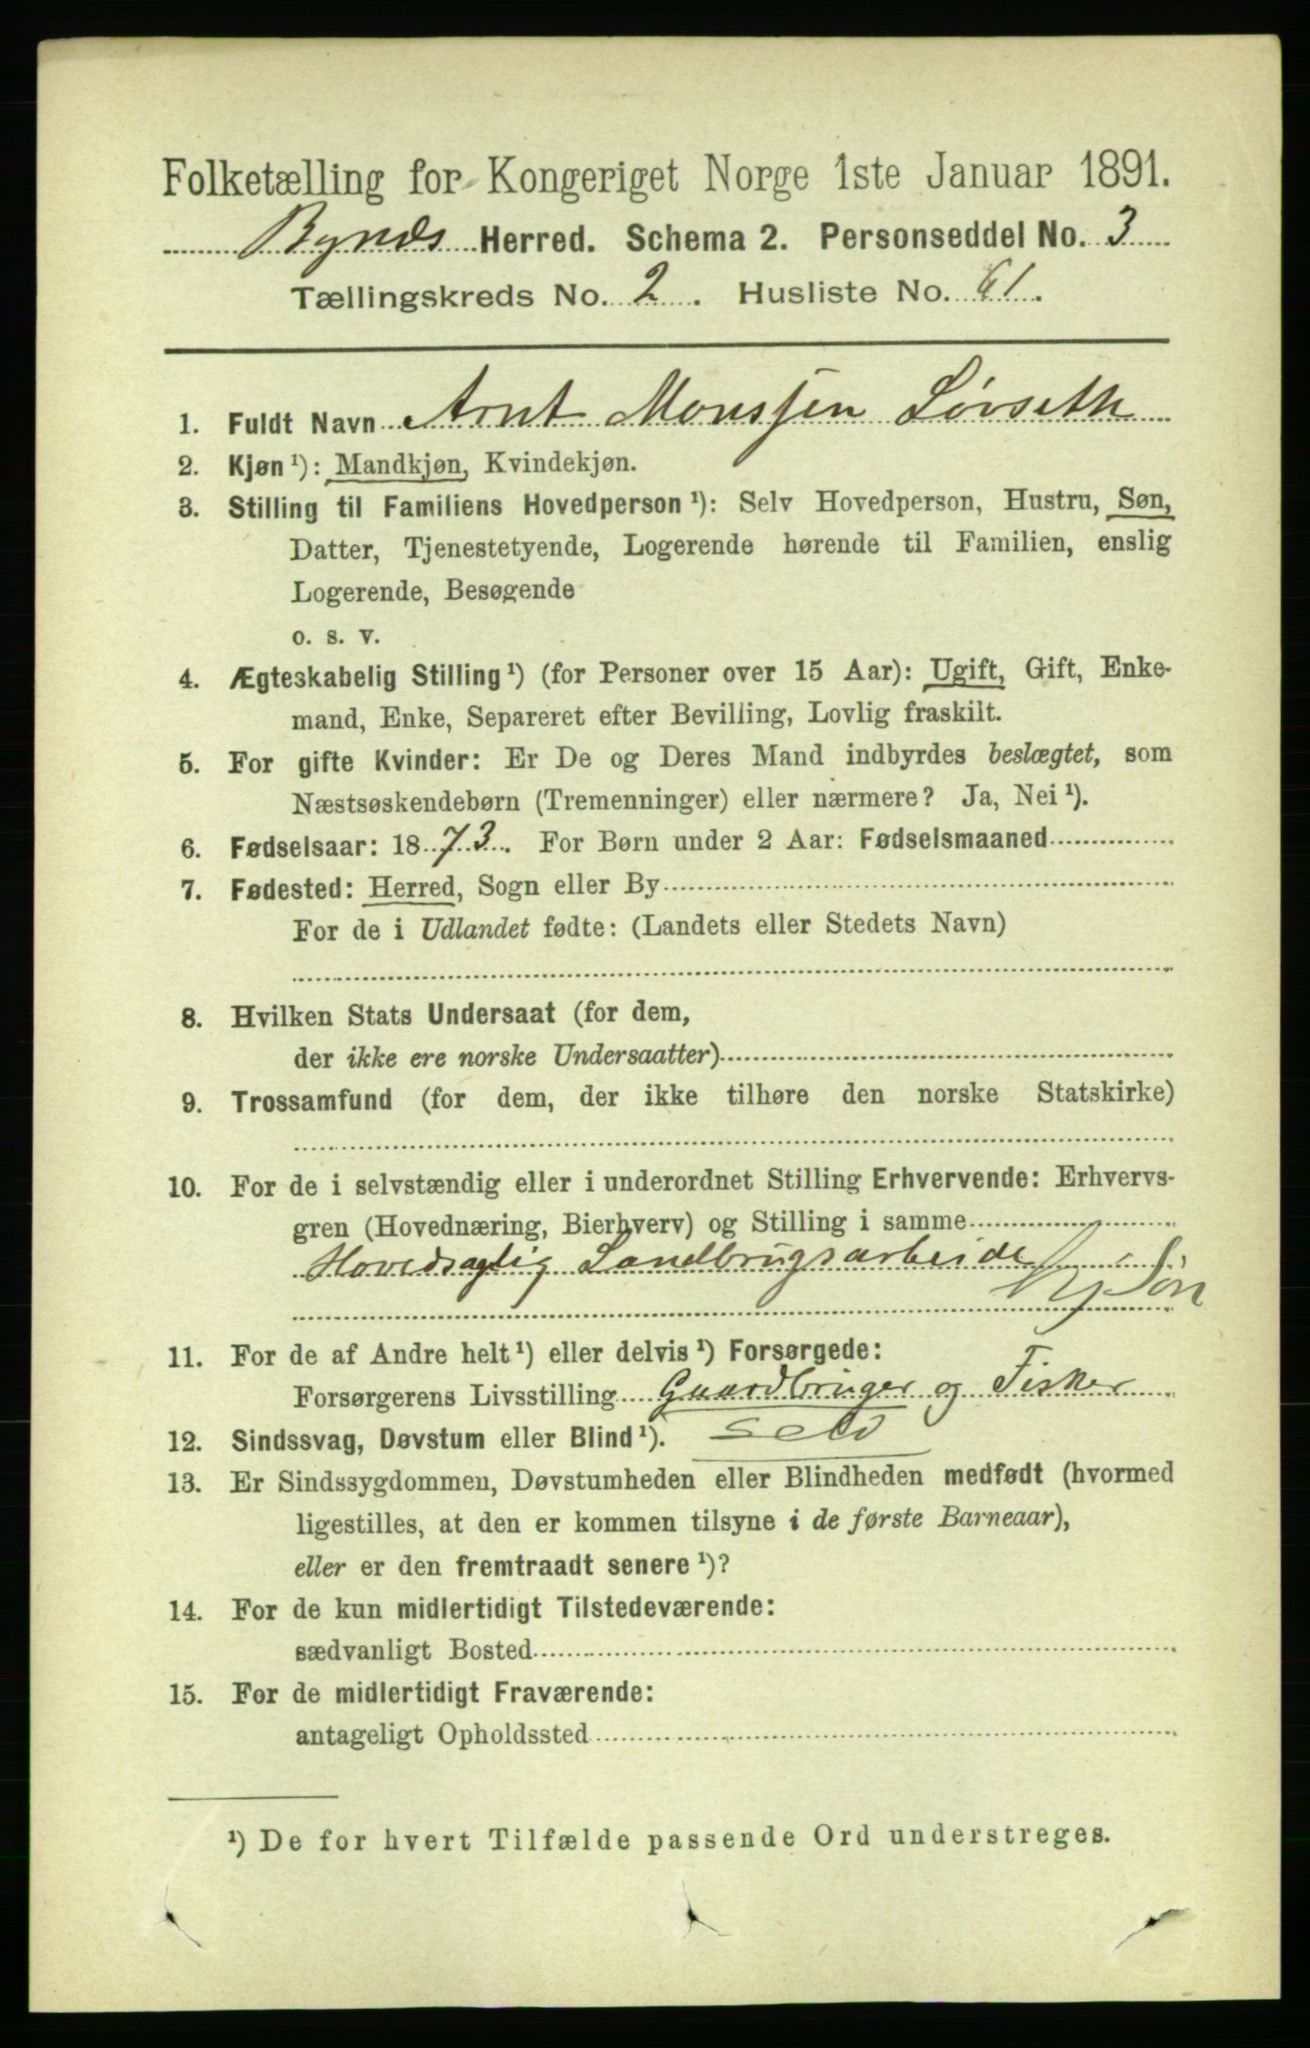 Folketælling for Kongeriget Norge 1ste Januar 1891.
Bynæs Herred. Schema 2. Personseddel No. 3
Tællingskreds No. 2. Husliste No. 61.
1. Fuldt Navn Arnt Monssen Løvseth
2. Kjøn ¹): Mandkjøn, Kvindekjøn.
3. Stilling til Familiens Hovedperson ¹): Selv Hovedperson, Hustru, Søn,
Datter, Tjenestetyende, Logerende hørende til Familien, enslig
Logerende, Besøgende
o. s. v.
4. Ægteskabelig Stilling ¹) (for Personer over 15 Aar): Ugift, Gift, Enke-
mand, Enke, Separeret efter Bevilling, Lovlig fraskilt.
5. For gifte Kvinder: Er De og Deres Mand indbyrdes beslægtet, som
Næstsøskendebørn (Tremenninger) eller nærmere? Ja, Nei ¹).
6. Fødselsaar: 1873. For Børn under 2 Aar: Fødselsmaaned
7. Fødested: Herred, Sogn eller By
For de i Udlandet fødte: (Landets eller Stedets Navn)
8. Hvilken Stats Undersaat (for dem,
der ikke ere norske Undersaatter)
9. Trossamfund (for dem, der ikke tilhøre den norske Statskirke)
10. For de i selvstændig eller i underordnet Stilling Erhvervende: Erhvervs-
gren (Hovednæring, Bierhverv) og Stilling i samme
Hovedsaglig Landbrugsarbeide
Søn
11. For de af Andre helt ¹) eller delvis ¹) Forsørgede:
Forsørgerens Livsstilling Gaardbruger og Fisker
12. Sindssvag, Døvstum eller Blind ¹).
13. Er Sindssygdommen, Døvstumheden eller Blindheden medfødt (hvormed
ligestilles, at den er kommen tilsyne i de første Barneaar),
eller er den fremtraadt senere ¹)?
14. For de kun midlertidigt Tilstedeværende:
sædvanligt Bosted
15. For de midlertidigt Fraværende:
antageligt Opholdssted
¹) De for hvert Tilfælde passende Ord understreges.